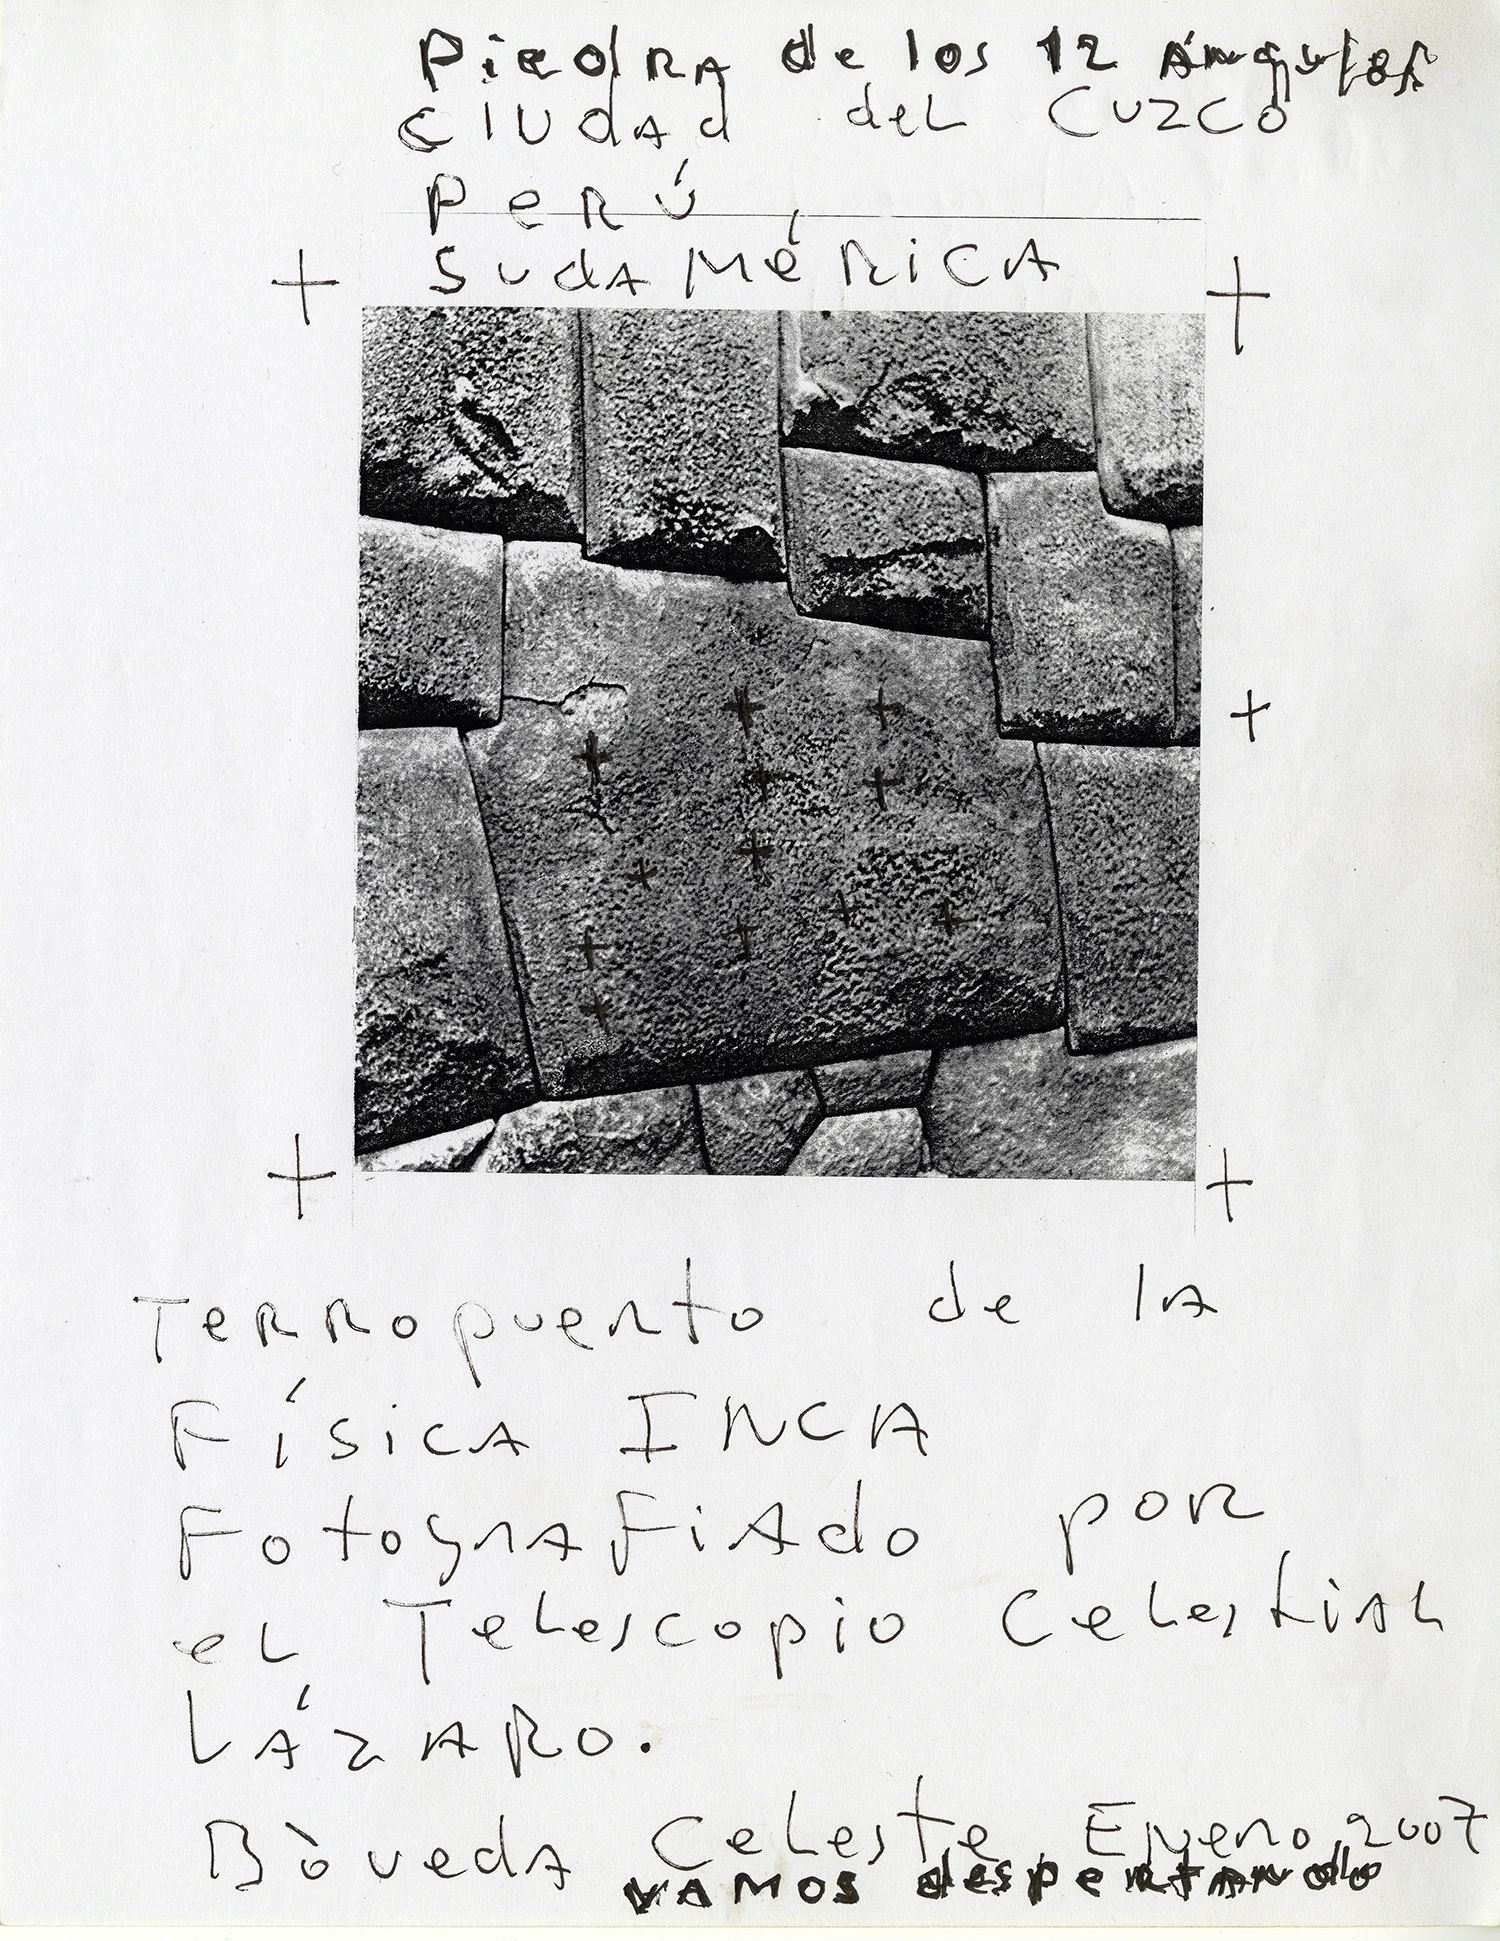 Piedra de los 12 Ángulos
Ciudad del Cuzco
Perú,
Sudamérica
Terropuerto de la
Física INCA
Fotografiado por
el Telescopio Celestial
Lázaro.
Bòveda Celeste Enero, 2007
VAMOS despertando